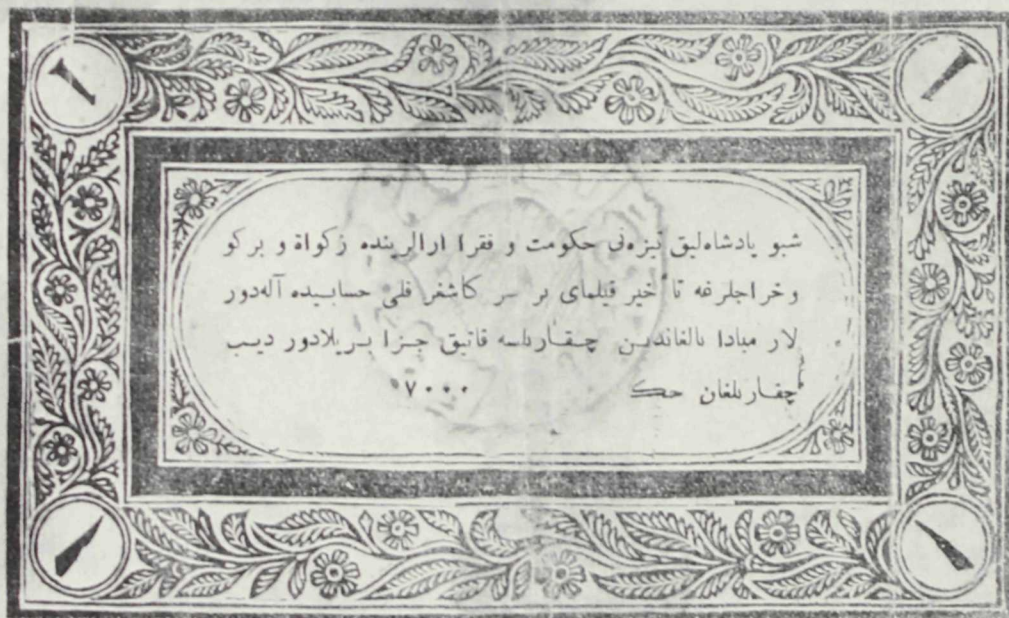 شبو پادشاهلیق تیزه‌نی حکومت و فقرا ارالرینده زکواة و برکو
و خراجلرغه تأخیر قیلمای بر سر کاشغر فلی حسابیده آله‌دور
لار مبادا یالغاندین چقاریلسه قاتیق جزا بریلادور دیب
چقاریلغان حک ۷۰۰۰
۱ ۱
۱ ۱